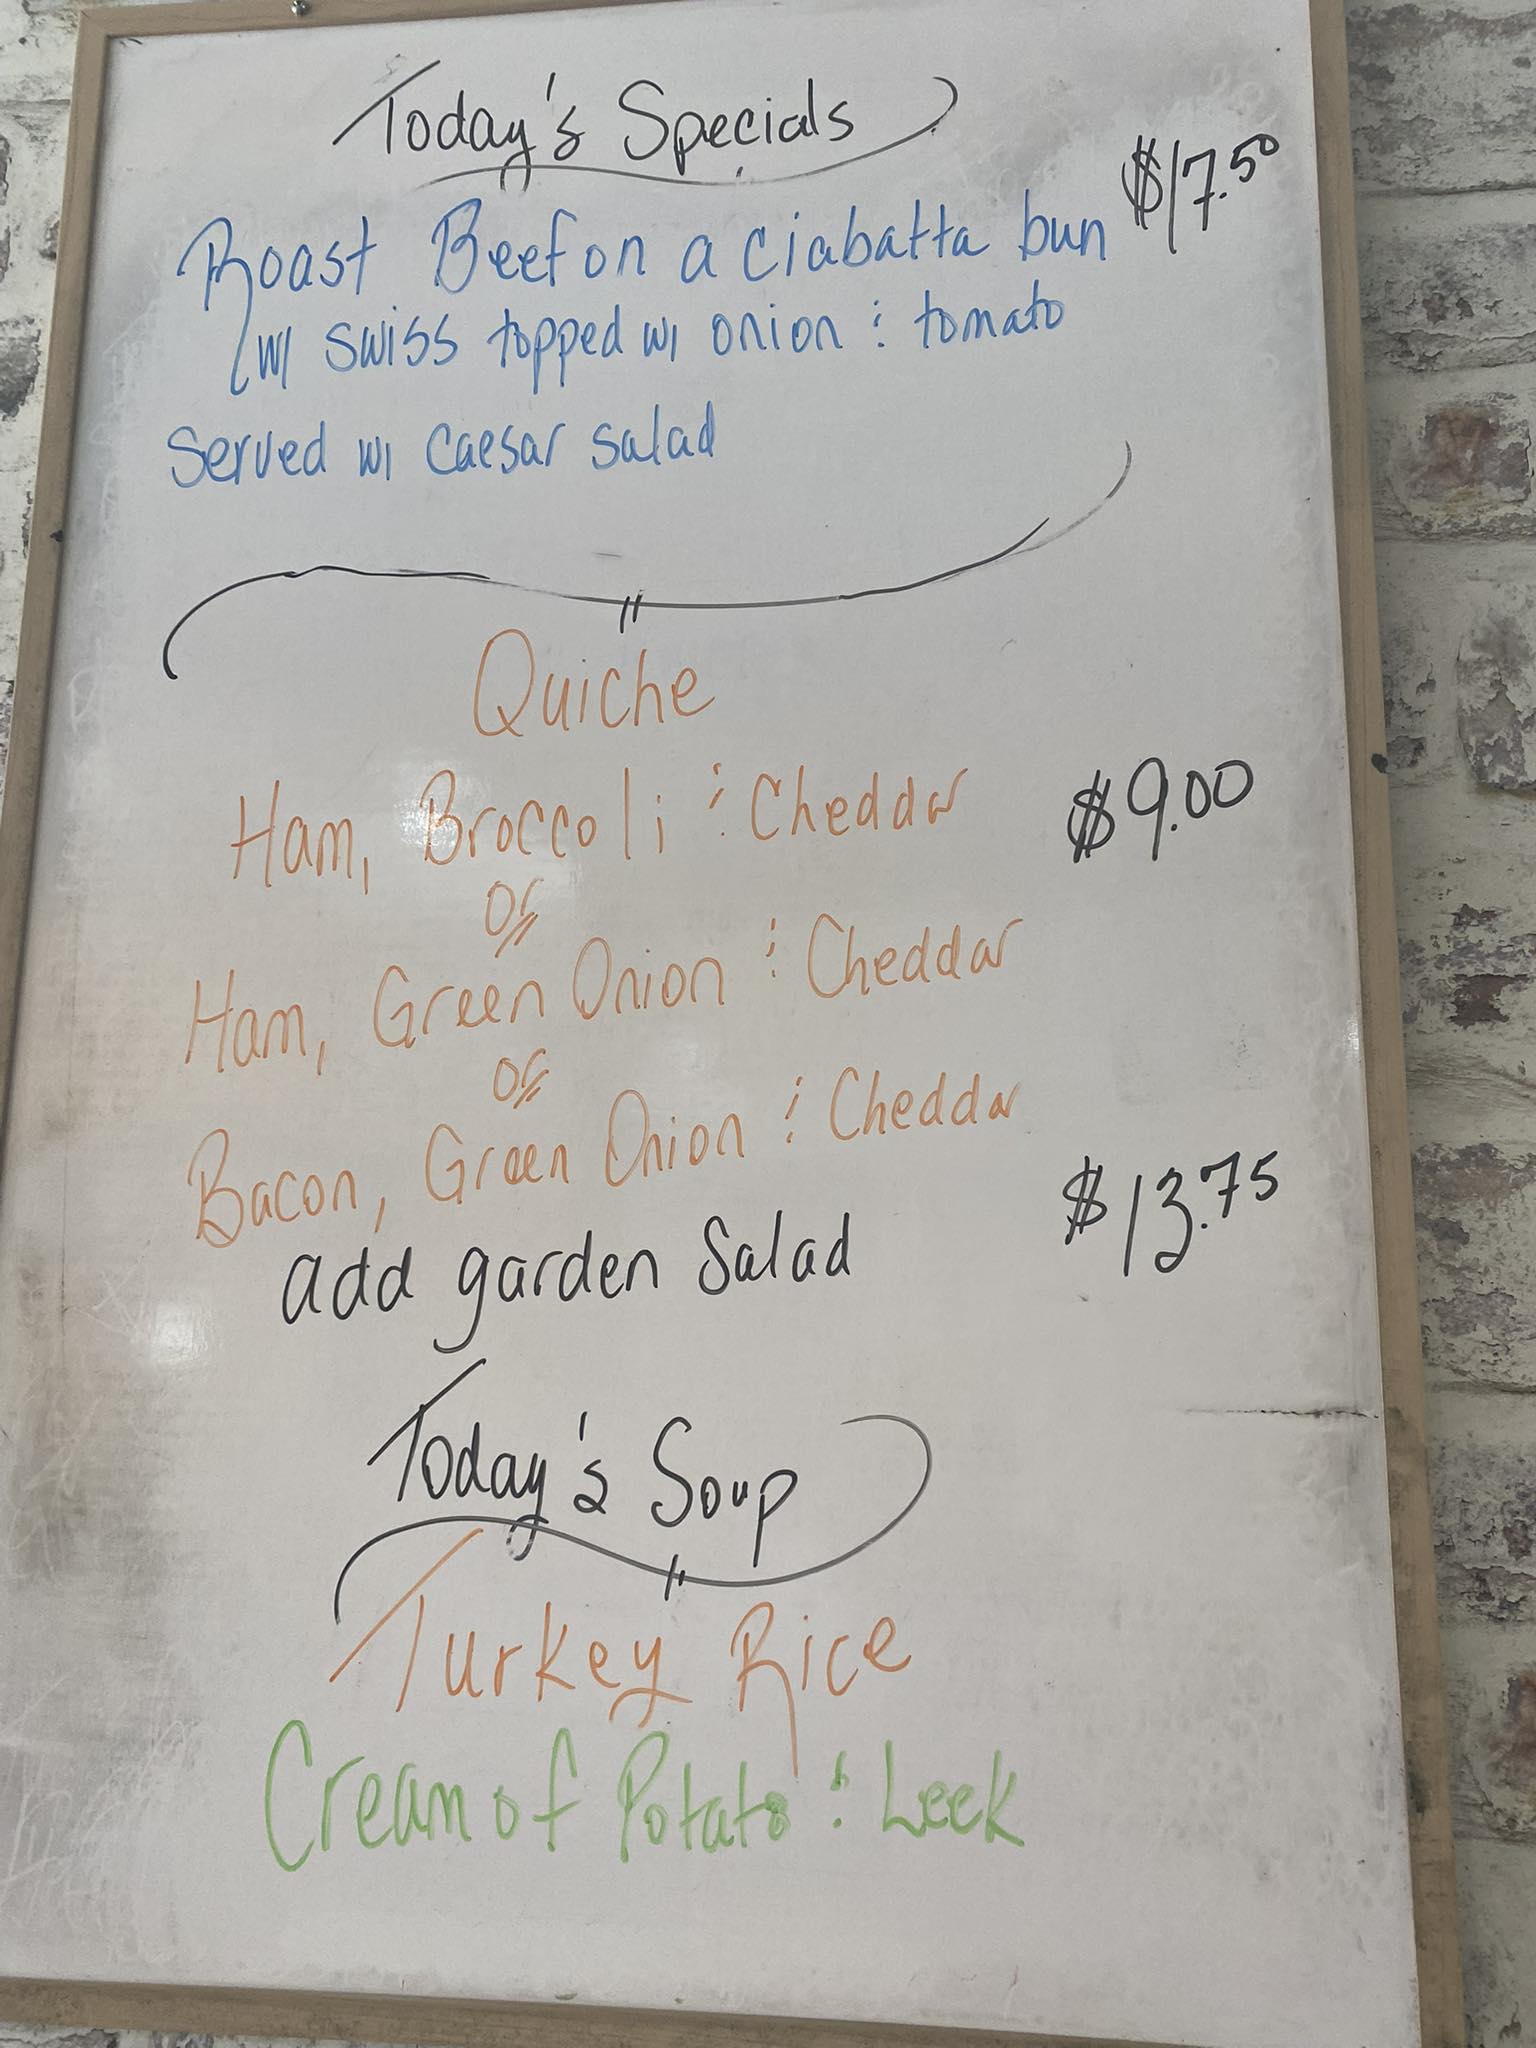 Today's Specials
$17.50
Roast Beef on a ciabatta bun
w/ swiss topped w/ onion & tomato
Served w/ caesar salad
Quiche
Ham, Broccoli & Cheddar $9.00
or
Ham, Green Onion & Cheddar
or
Bacon, Green Onion & Cheddar
add garden salad $13.75
Today's Soup
Turkey Rice
Cream of Potato & Leek